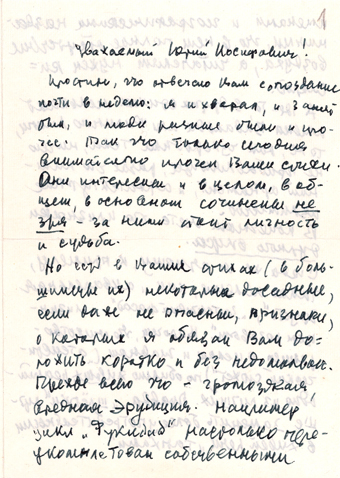 1
Уважаемый Юрий Иосифович!
Простите, что отвечаю Вам с опозданием
почти в неделю: я и хворал, и занят
был, и люди разные были и про-
чее. Так что только сегодня
внимательно прочел Ваши стихи.
Они интересны и в целом, в об-
щем, в основном сочинены не
зря – за ними стоит личность
и судьба.
Но есть в Ваших стихах (в боль-
шинстве их) некоторые досадные,
если даже не опасные, признаки,
о которых я обязан Вам до-
ложить коротко и без недомолвок.
Прежде всего это – громоздкая
вредная эрудиция. Например
цикл „Фукидид" настолько пере-
укомплектован собственными